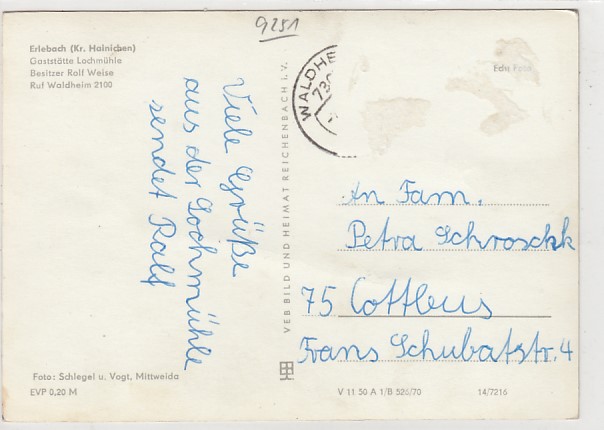 9251
Erlebach (Kr. Hainichen)
Gaststätte Lochmühle
Besitzer Rolf Weise
Ruf Waldheim 2100
Viele Grüße
aus der Lochmühle
sendet Ralf
Foto: Schlegel u. Vogt, Mittweida
EVP 0,20 M
VEB BILD UND HEIMAT REICHENBACH i. V.
WALDHE
730
An Fam.
Petra Schroschk
75 Cottbus
Frans Schubatstr. 4
V 11 50 A 1/B 526/70 14/7216